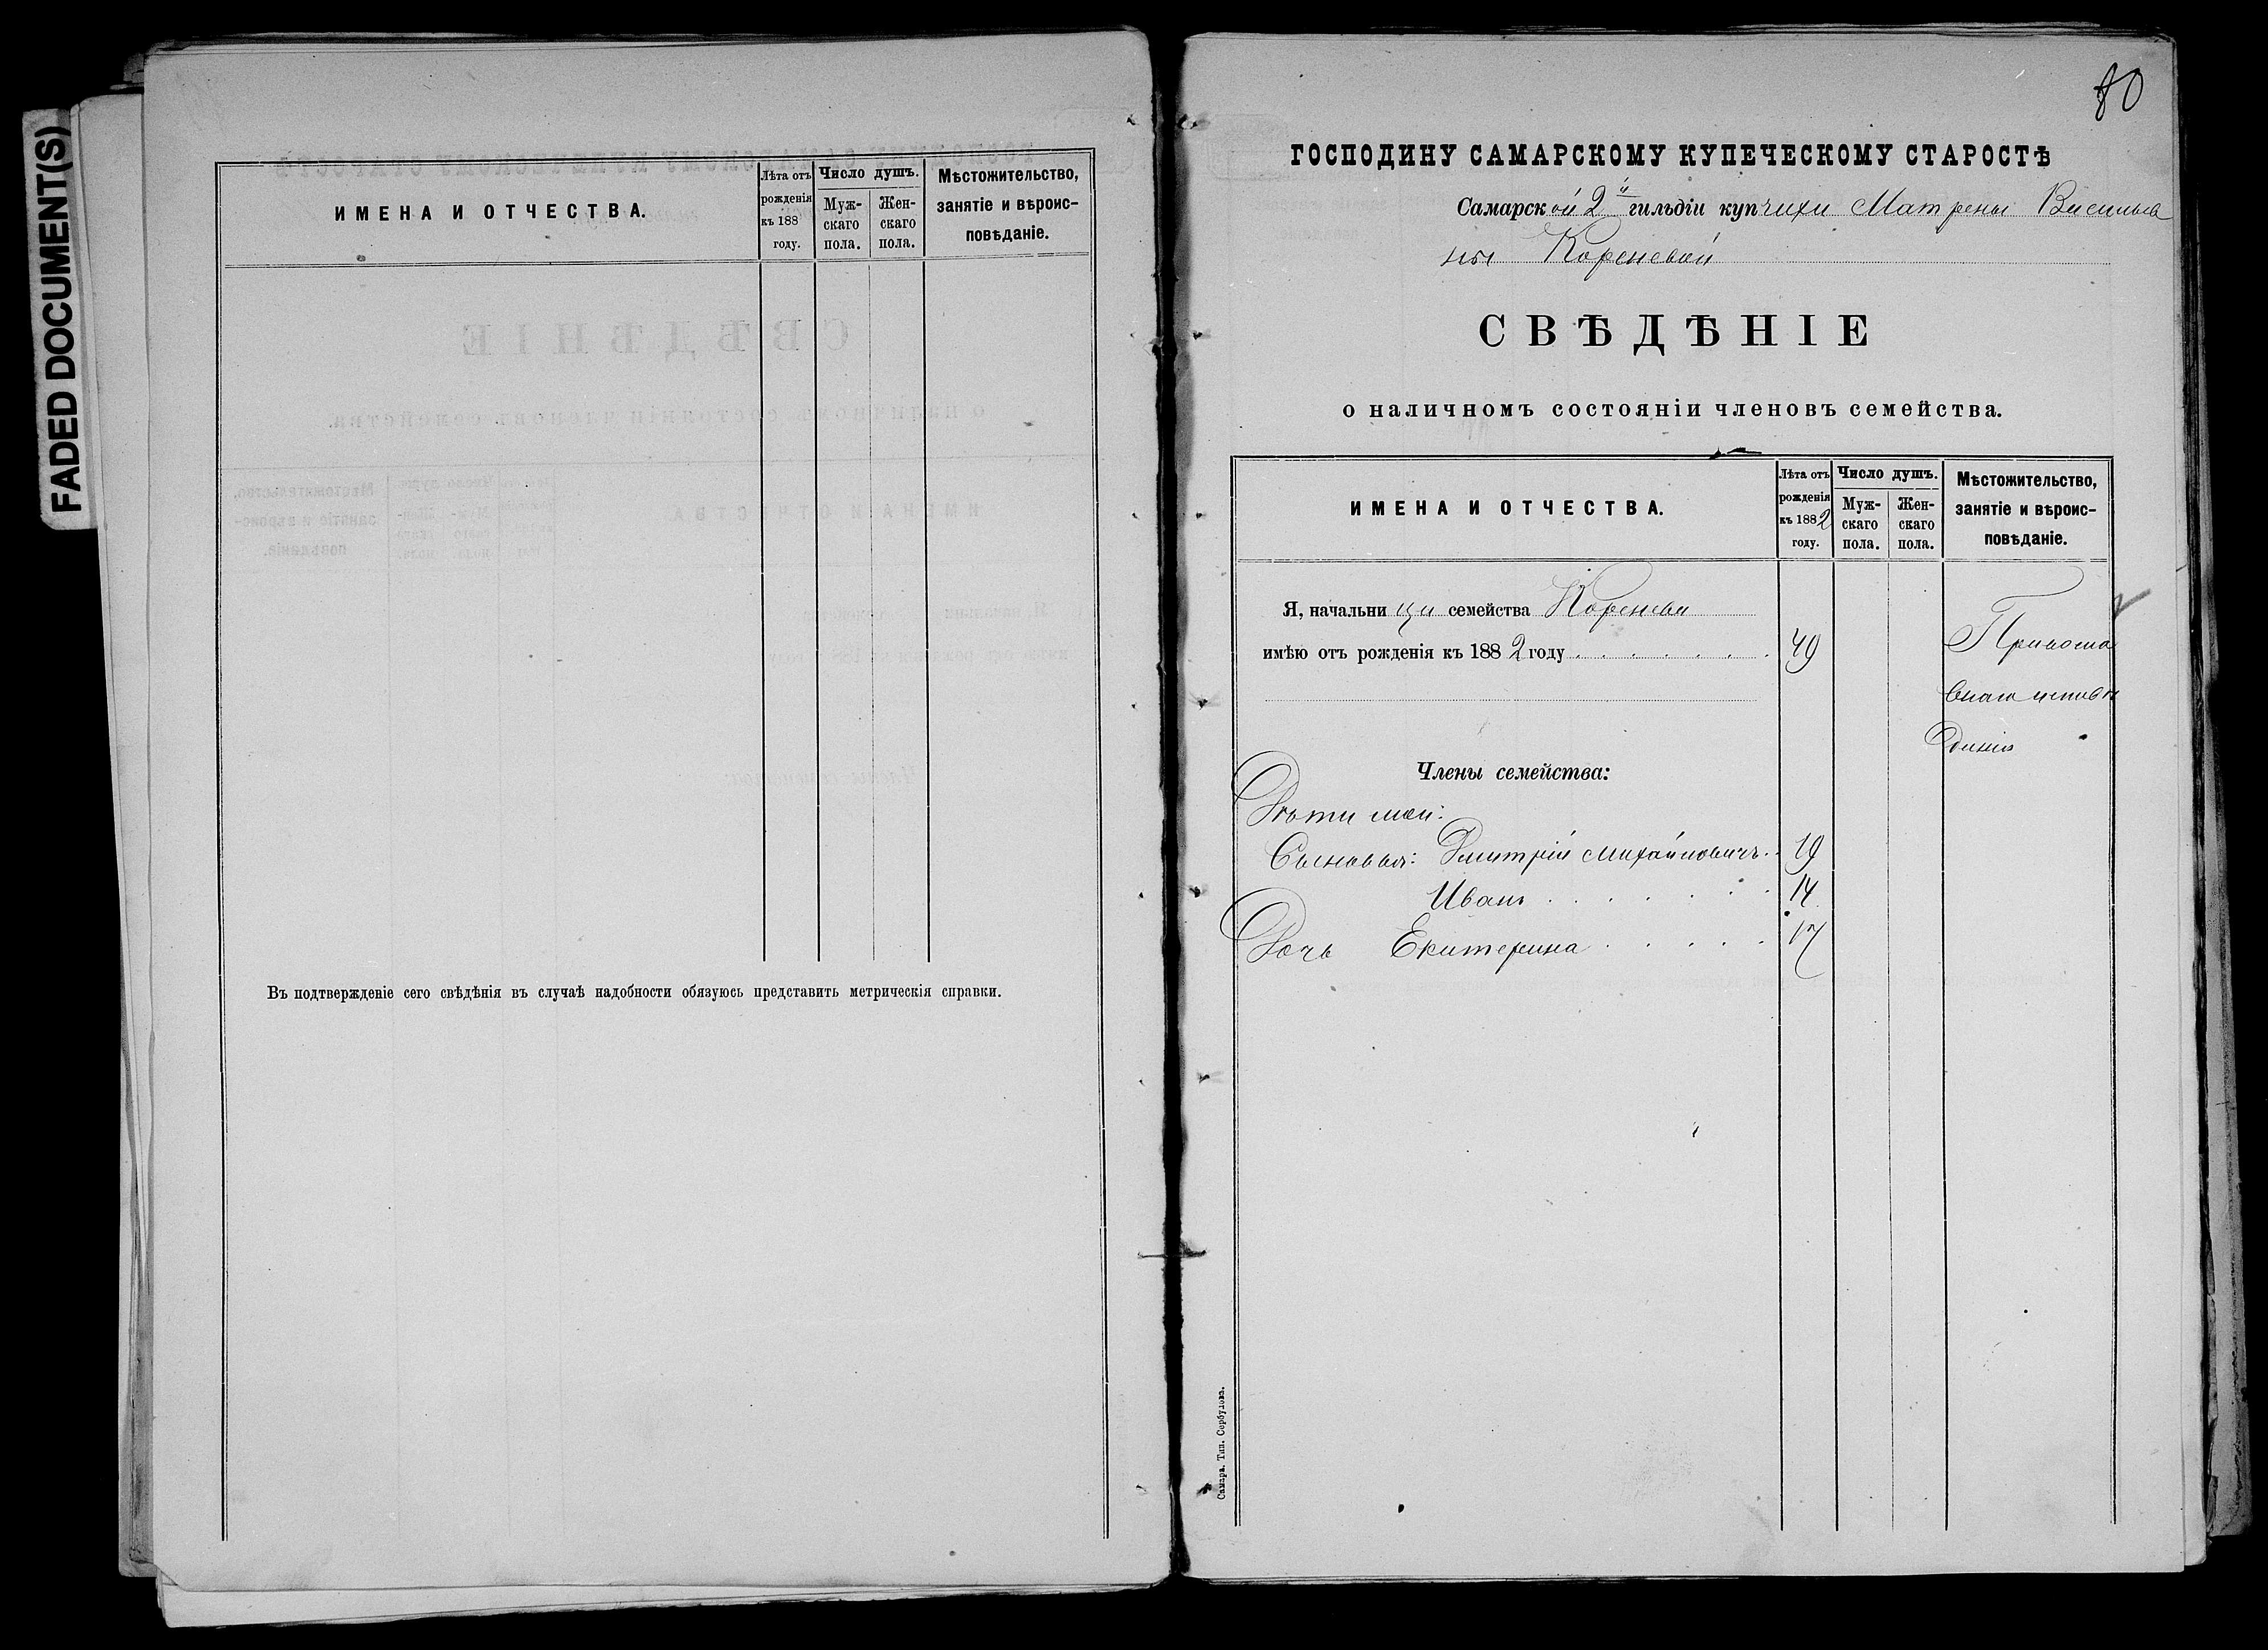 FADED DOCUMENT(S)
ИМЕНА И ОТЧЕСТВА.
Лѣта отъ рожденія къ 188 году.
Число душъ.
Мужскаго пола.
Женскаго пола.
Мѣстожительство, занятіе и вѣроисповѣданіе.
Въ подтвержденіе сего свѣдѣнія въ случаѣ надобности обязуюсь представить метрическія справки.
80
ГОСПОДИНУ САМАРСКОМУ КУПЕЧЕСКОМУ СТАРОСТѢ
Самарской 2й гильдіи купчихи Матрены Васильев
ны Кореневой
СВѢДѢНІЕ
о наличномъ состояніи членовъ семейства.
ИМЕНА И ОТЧЕСТВА.
Лѣта отъ рожденія къ 1882 году.
Число душъ.
Муж-
скаго
пола.
Жен-
скаго
пола.
Мѣстожительство,
занятіе и вѣроис-
повѣданіе.
Я, начальница семейства Коренева
имѣю отъ рожденія къ 1882 году . . . . . . . 49
Правосла
внаго исповѣ
данія
Члены семейства:
Дѣти мои:
Сыновья: Дмитрій Михайловичъ . . 19
Иванъ . . . . . . . 14
Дочь Екатерина . . . . . 17
Самара. Тип. Сербулова.